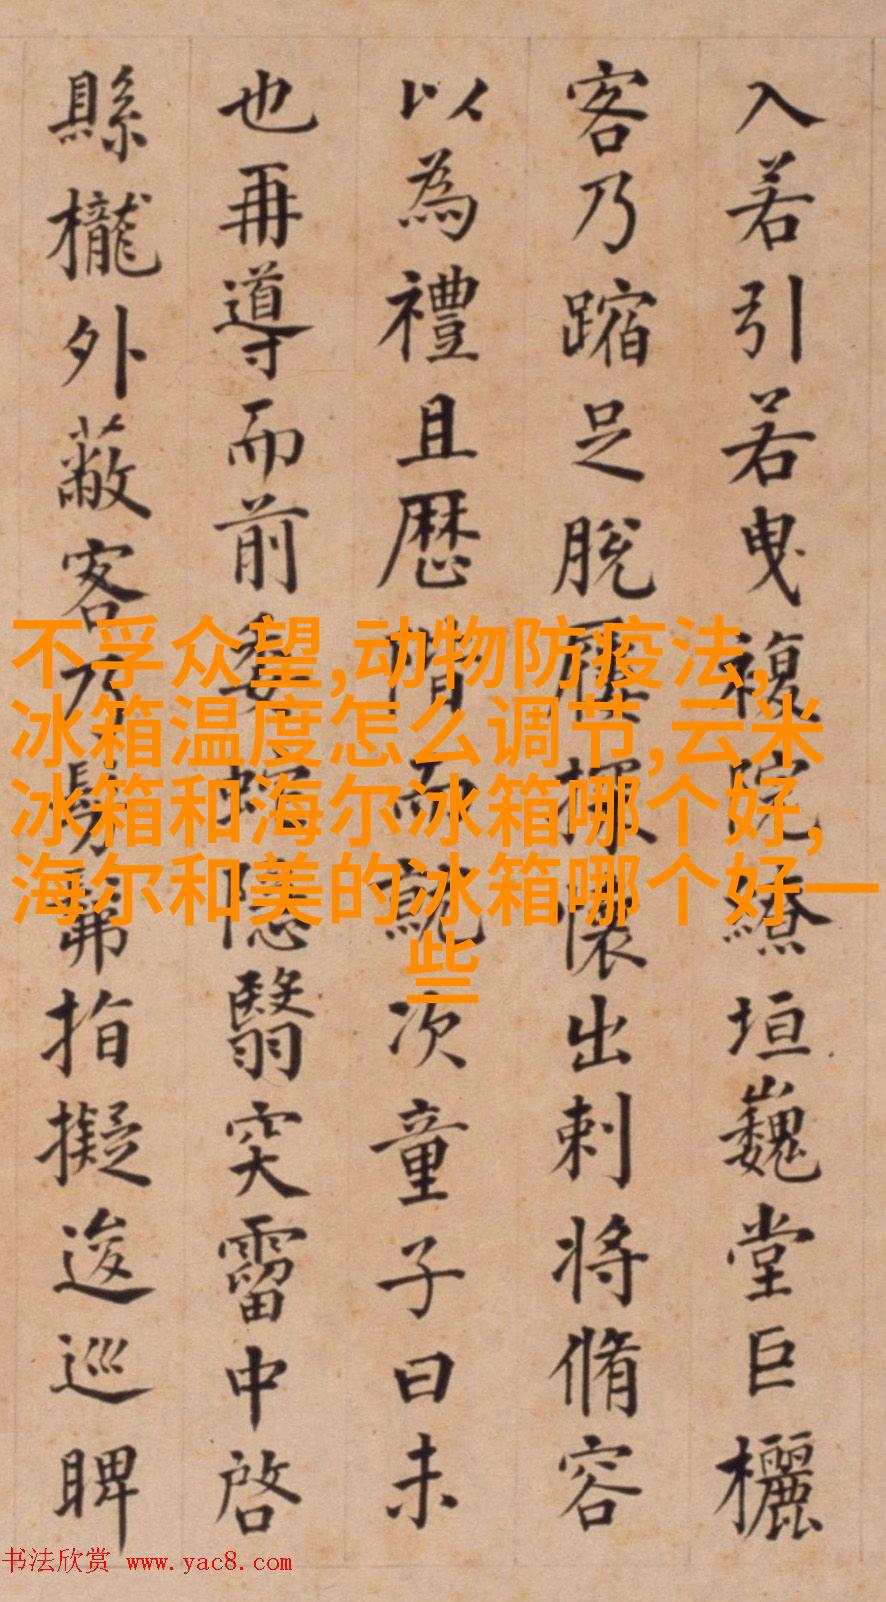 入若引若曳複院繚垣巍堂巨欐
客乃蹜足脫屨探懷出刺將脩容
以為禮且歷階而就次童子曰未
也再導而前委蛇隱翳突霤中啓
縣櫳外蔽客乃髣髴指擬逡巡睥
不孚众望,动物防疫法,
冰箱温度怎么调节,云米
冰箱和海尔冰箱哪个好,
海尔和美的冰箱哪个好一
些
书法欣赏 www.yac8.com